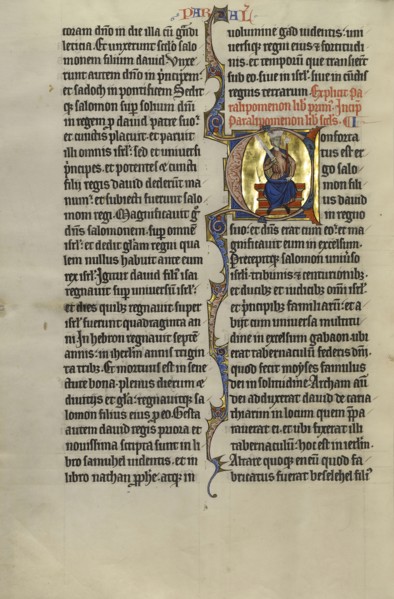 PARAL
coram dño in die illa cũ g̃ndi
leticia. Et unxerunt scḋo salo
monem filium dauid. Unxe
runt autem dño in principem:
et sadoch in pontificem. Sedit
q; salomon sup solium dñi
in regem p dauid patre suo:
et cunctis placuit. et paruit
illi omnis isrl'. sed et uniuersi
principes. et potentes. et cuncti
filii regis dauid dederunt ma
num: et subiecti fuerunt salo
moni regi. Magnificauit g̃
dñs salomonem. sup omnẽ
isrl'. et dedit glam regni qua
lem nullus habuit ante eum
rex isrl'. Igitur dauid fili' isai
regnauit sup uniuersũ isrl'.
et dies quibʒ regnauit super
isrl' fuerunt quadraginta an
ni. In hebron regnauit septẽ
annis. in ihrlm anñ triginta
tribʒ. Et mortuus est in sene
ctute bona. plenus dierum et
diuitiis et gla. regnauitq; sa
lomon filius eius p eo. Gesta
autem dauid regis priora et
nouissima scripta sunt in li
bro samuhel uidentis. et in
libro nathan pphe. atq; in
uolumine gad uidentis. uni
uersiq; regni eius et fortitudi
nis. et temporum que transier̃
sub eo. siue in isrl'. siue in cũctis
regnis terrarum. Explicit Pa
ralipomenon lib prim'. Incip
Paralipomenon lib scds. CI
Conforta
tus est er
go salo
mon fili
us dauid
in regno
suo: et dñs erat cum eo. et ma
gnificauit eum in excelsum.
Precepitq; salomon uniuso
isrl'. tribunis et centurionibʒ.
et ducibʒ et iudicibʒ oms isrl'.
et principibʒ familiarũ: et a
bijt cum uniuersa multitu
dine in excelsum gabaon. ubi
erat tabernaculũ federis dñi.
quod fecit moyses famulus
dei in solitudine. Archam aũ
dei adduxerat dauid de caria
thiarim in locum quem ppa
rauerat ei. et ubi fixerat illi
tabernaculũ: hoc est in ierlm.
Altare quoq; eneũ quod fa
bricatus fuerat beselehel fili'